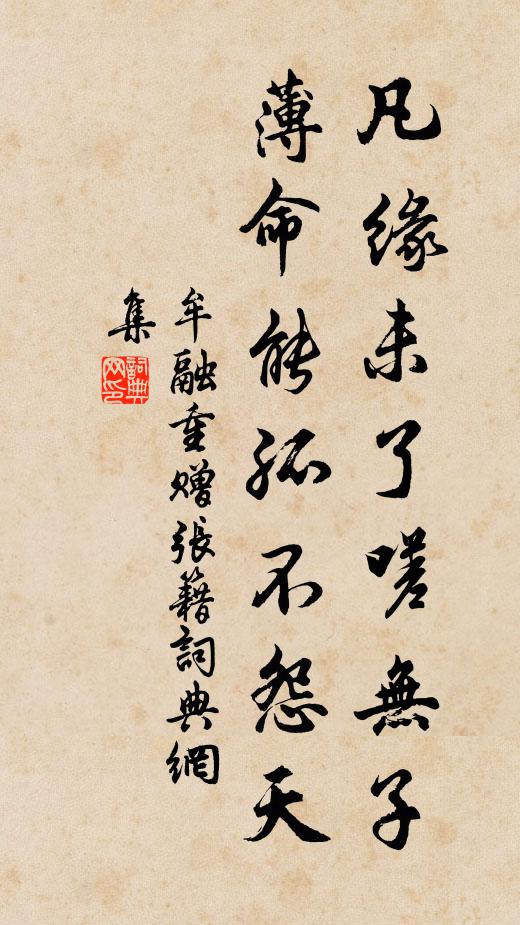 凡緣未了嗟無子
薄命能孤不怨天
牟融重贈張籍詞典網
集
詞典網印